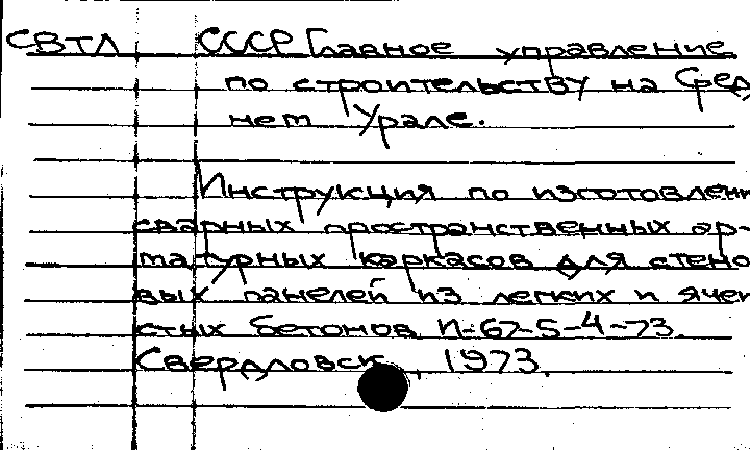 СВТЛ СССР Главное управление
по строительству на Сред
нет Урале.
Инструкция по изготовлени
сварных пространственных ар-
матурных каркасов для стено
вых панелей из легких и ячеи
стых бетонов И-67-5-4-73.
Свердловск, 1973.